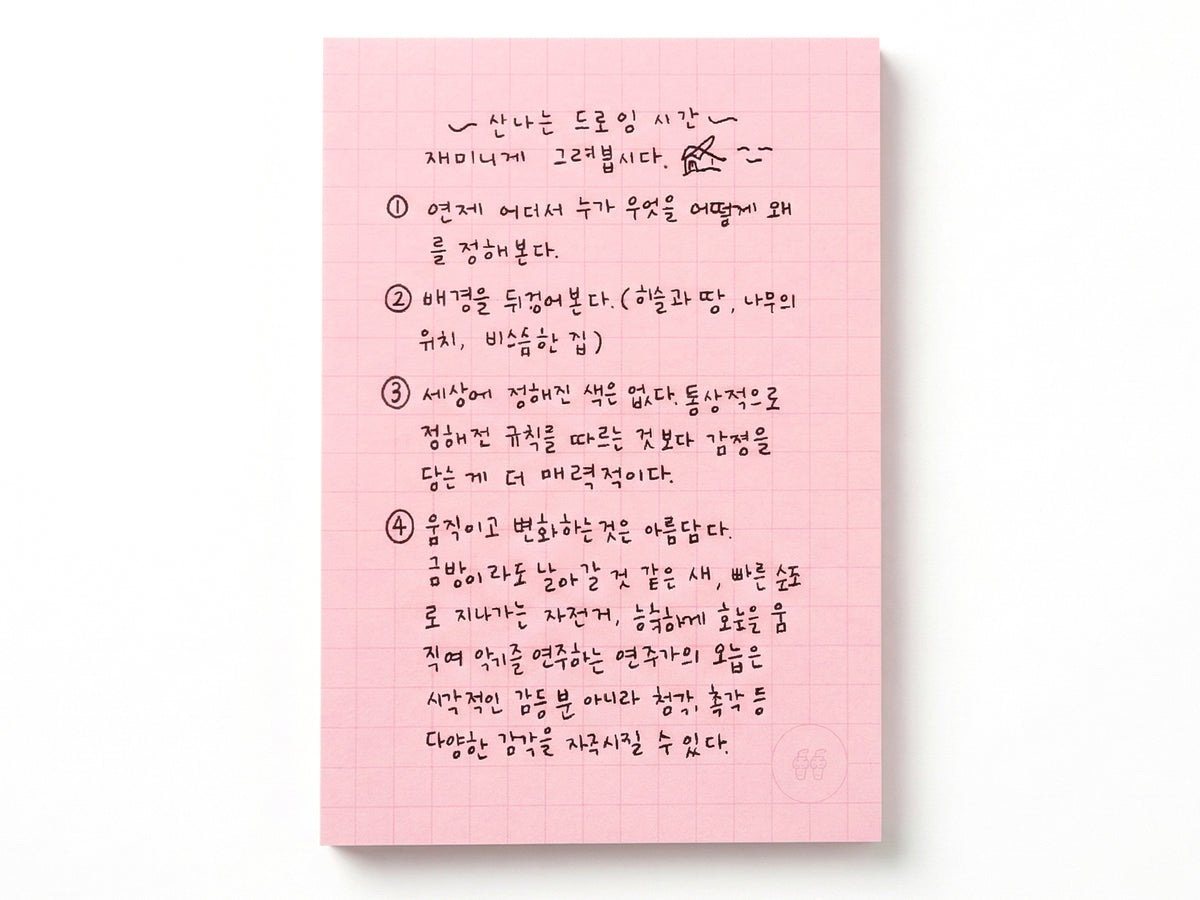 산나는 드로잉 시간
재미니게 그려봅시다.
① 연제 어더서 누가 우엇을 어떻게 왜
를 정해본다.
② 배경을 뒤겅어본다.(히슬과 땅, 나무의
위치, 비스슴한 집)
③ 세상에 정해진 색은 없다. 통상적으로
정해전 규칙를 따르는 것보다 감졍을
담는게 더 매력적이다.
④ 움직이고 변화하는것은 아름답다.
금방이라도 날아갈 것 같은 새, 빠른 속조
로 지나가는 자전거, 능축하게 호눞을 움
직여 악기즐 연주하는 연주가의 오늡은
시각적인 감등분 아니라 첨각, 촉각 등
다양한 감각을 자극시낄 수 있다.